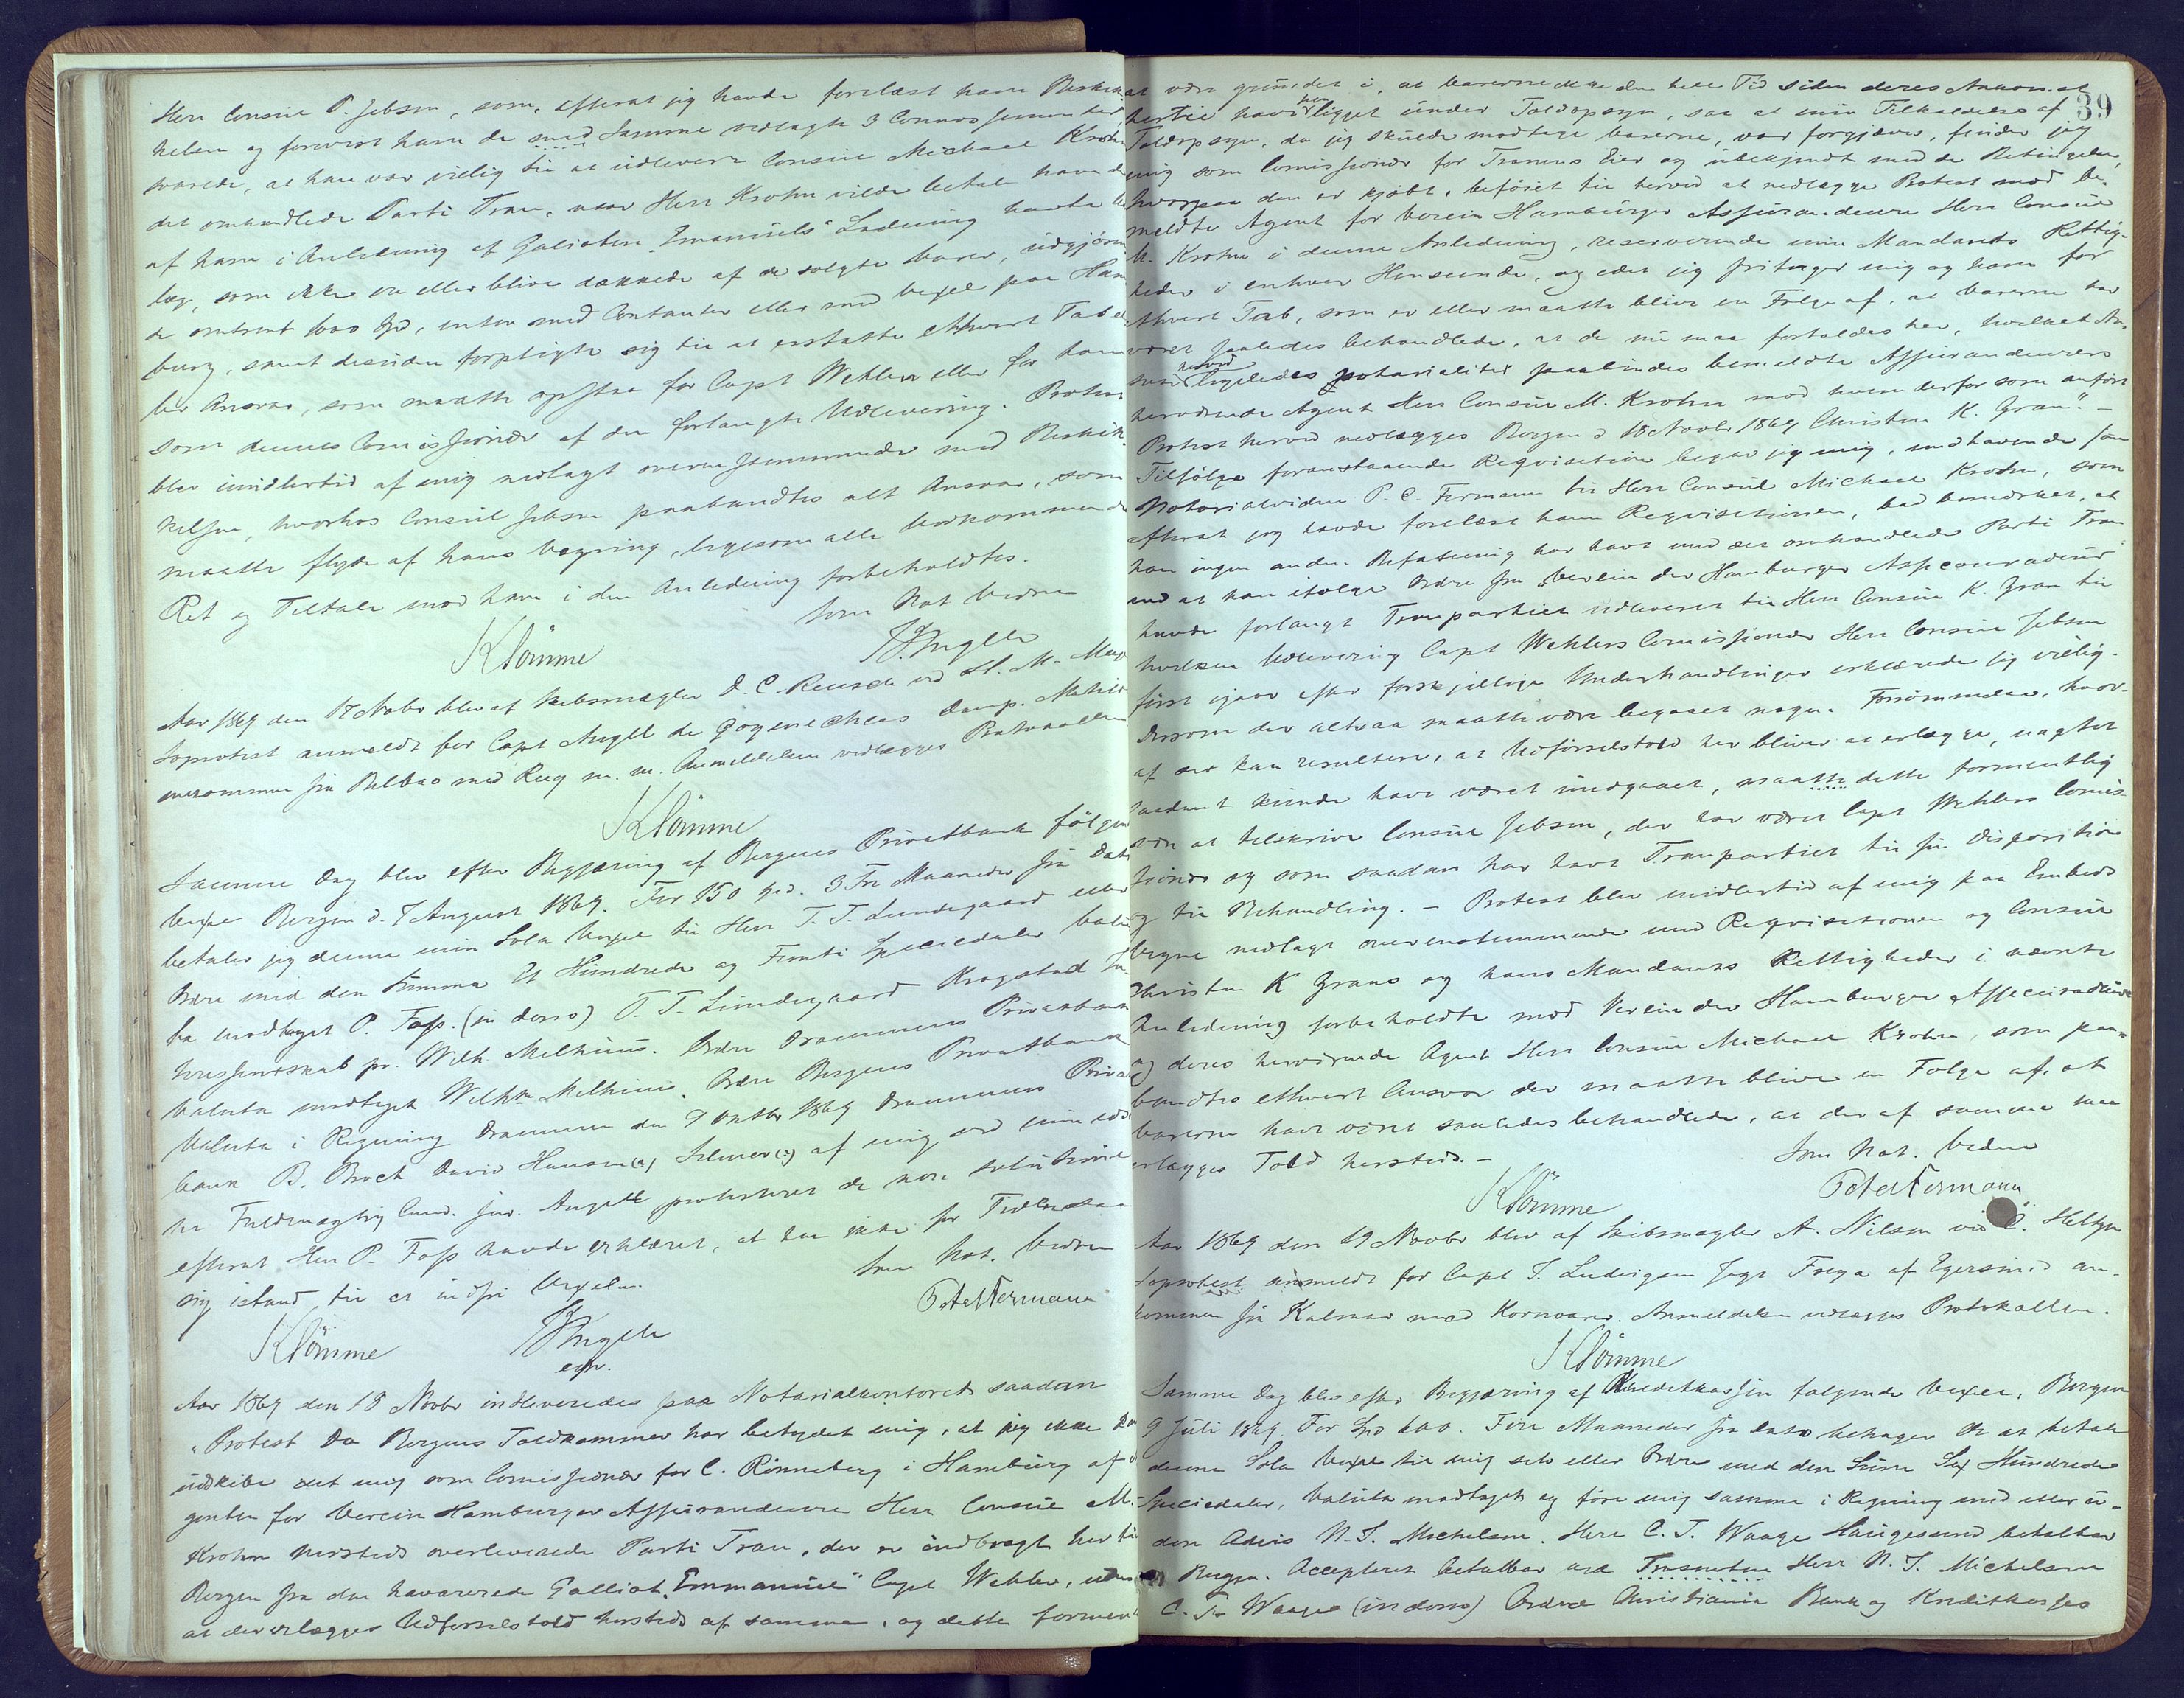 Herr Consul P. Jebsen, som, efterat jeg havde forelæst ham Beskik-
kelsen og forevist ham de med Samme vedlagte 3 Connossementer
svarede, at han var villig til at udlevere Consul Michael Krohn
det omhandlede Parti Tran, naar Herr Krohn vilde betale ham de
af ham i Anledning af Galioten "Emanuels" Ladning havte
læg, som ikke ere eller blive dækkede af de solgte Varer, udgjøren
de omtrent 600 Spd, enten med Contanter eller med Vexel paa Ham
burg, samt desuden forpligte sig til at erstatte ethvert Tab el
ler Ansvar, som maatte opstaa for Capt Wehler eller for ham
som dennes Comissionær af den forlangte Udlevering. Protest
blev imidlertid af mig nedlagt overensstemmende med Beskik-
kelsen, hvorhos Consul Jebsen paabandtes alt Ansvar, som
maatte flyde af hans Vægring, ligesom alle vedkommende
Ret og Tiltale mod ham i den Anledning forbeholdtes.
Som Not Vidne
Klömme
J Angell
Aar 1869 den 17 Novbr blev af Skibsmægler D. C. Reusch ved H. M. Meyer
Søprotest anmeldt for Capt Angell de Gogenecheas Damp. Mathil
ankommen fra Bilbao med Rug m. m. Anmeldelsen vedlægges Protocollen
Klömme
Samme Dag blev efter Begjæring af Bergens Privatbank følgen
Vexel Bergen d. 7 August 1869. For 150 Spd. 3 Tre Maaneder fra Dato
betaler jeg denne min Sola Vexel til Herr T. T. Lundegaard eller
Ordre med den Summa Et Hundrede og Femti Speciedaler Valu
ta modtaget P. Foss. (in dorso) T. T. Lundegaard Kragstad In
teressentskab pr. Wilh. Milhuus. Ordre Drammens Privatbank
Valuta modtaget Wilh Milhuus. Ordre Bergens Privatbank
Valuta i Regning Drammen den 9 Oktbr 1869 Drammens Privat
bank B. Broch David Hansen(?) af mig ved min ed
Fuldmægtig Cand. jur. Angell protesteret de non solutione
efterat Herr P. Foss havde erklæret, at han ikke for Tiden saa
sig istand til at indfri Vexelen.
Som Not. Vidne
Peter Fermann
Klömme
J Angell
Aar 1869 den 18 Novbr indleveredes paa Notarialkontoret saadan
"Protest Da Bergens Toldkammer har betydet mig, at jeg ikke kan
udskibe det mig som Comissionær for C. Rönneberg i Hamburg af
genten for Verein Hamburger Assurandeure Herr Consul M.
Krohn hersteds overleverede Parti Tran, der er indbragt her til
Bergen fra den havarerede Galliot "Emmanuel" Capt Wehler, uden
at der erlægges Udførselstold hersteds af samme, og dette formen
39
at være grundet i, at Varerne ikke den hele Tid siden deres Ankomst
hertil have her ligget under Toldopsyn, saa at min Tilkaldelse af
Toldopsyn, da jeg skulde modtage Varerne, var forgjæves, finder jeg
mig som Comissionær for Tranens Eier og ubekjendt med de Betingelser,
hvorpaa den er kjøbt, beføiet til herved at nedlægge Protest mod be-
meldte Agent for Verein Hamburger Assurandeure Herr Consul
M. Krohn i denne Anledning, reserverende min Mandants Rettig-
heder i enhver Henseende, og idet jeg fritager mig og ham for
ethvert Tab, som er eller maatte blive en Følge af, at Varerne har
været saaledes behandlede, at de nu maa fortoldes her, hvilket An-
svar herved ligeledes notarialiter paabindes bemeldte Assurandeurers
herværende Agent Herr Consul M. Krohn mod hvem derfor som anført
Protest herved nedlægges Bergen d 18 Novbr 1869 Christen K. Gran." -
Tilfölge foranstaaende Reqvisition begav jeg mig, medhavende som
Notarialvidne P. C. Fermann til Herr Consul Michael Krohn, som
efterat jeg havde forelæst ham Reqvisitionen, bad bemærket, at
han ingen anden Befatning har havt med det omhandlede Parti Tran
end at han ifølge Ordre fra "Verein der Hamburger Assecuradeur"
havde forlangt Tranpartiet udleveret til Herr Consul K. Gran til
hvilken Udlevering Capt Wehlers Comissionær Herr Consul Jebsen
først igaar efter forskjellige Underhandlinger erklærede sig villig.
Dersom der altsaa maatte være begaaet nogen Forsömmelse, hvor-
af der kan resultere, at Udførselstold her bliver at erlægge, uagtet
saadant kunde have været undgaaet, maatte dette formentlig
være at tilskrive Consul Jebsen, der har været Capt Wehlers Comis-
sionær og som saadan har havt Tranpartiet til sin Disposition
og til Behandling. - Protest blev imidlertid af mig paa Embeds
vegne nedlagt overensstemmende med Reqvisitionen og Consul
Christen K Grans og hans Mandants Rettigheder i nævnte
Anledning forbeholdte mod Verein der Hamburger Assecuradeure
og deres herværende Agent Herr Consul Michael Krohn, som paa-
bandtes ethvert Ansvar der maatte blive en Følge af, at
Varerne have været saaledes behandlede, at der af samme maa
erlægges Told hersteds. -
Som Not. Vidne
Klömme
Peter Fermann
Aar 1869 den 19 Novbr blev af Skibsmægler A. Nilsen ved C. Heltzen
Søprotest anmeldt for Capt T. Ludvigsen Jagt Freya af Egersund an-
kommen fra Kalmar med Kornvarer. Anmeldelsen vedlægges Protokollen.
Klömme
Samme Dag blev efter Begjæring af Kreditkassen følgende Vexel, Bergen
9 Juli 1869. For Spd 600. Fire Maaneder fra Dato behager De at betale
denne Sola Vexel til mig selv eller Ordre med den Sum Sex Hundrede
Speciedaler, Valuta modtaget og føre mig samme i Regning med eller u-
den Advis N. J. Michelsen. Herr C. T. Waage Haugesund betalbar
Bergen. Accepteret betalbar ved Trasenten Herr N. J. Michelsen
C. T. Waage (in dorso) Ordre Christiania Bank og Kreditkasses